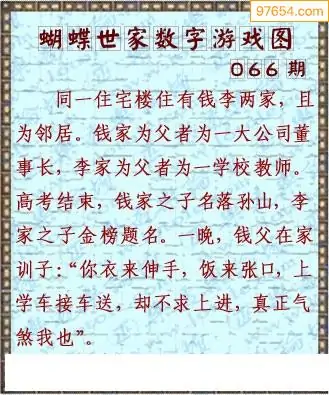 97654.com
蝴蝶世家数字游戏图
066 期
同一住宅楼住有钱李两家，且
为邻居。钱家为父者为一大公司董
事长，李家为父者为一学校教师。
高考结束，钱家之子名落孙山，李
家之子金榜题名。一晚，钱父在家
训子：“你衣来伸手，饭来张口，上
学车接车送，却不求上进，真正气
煞我也”。